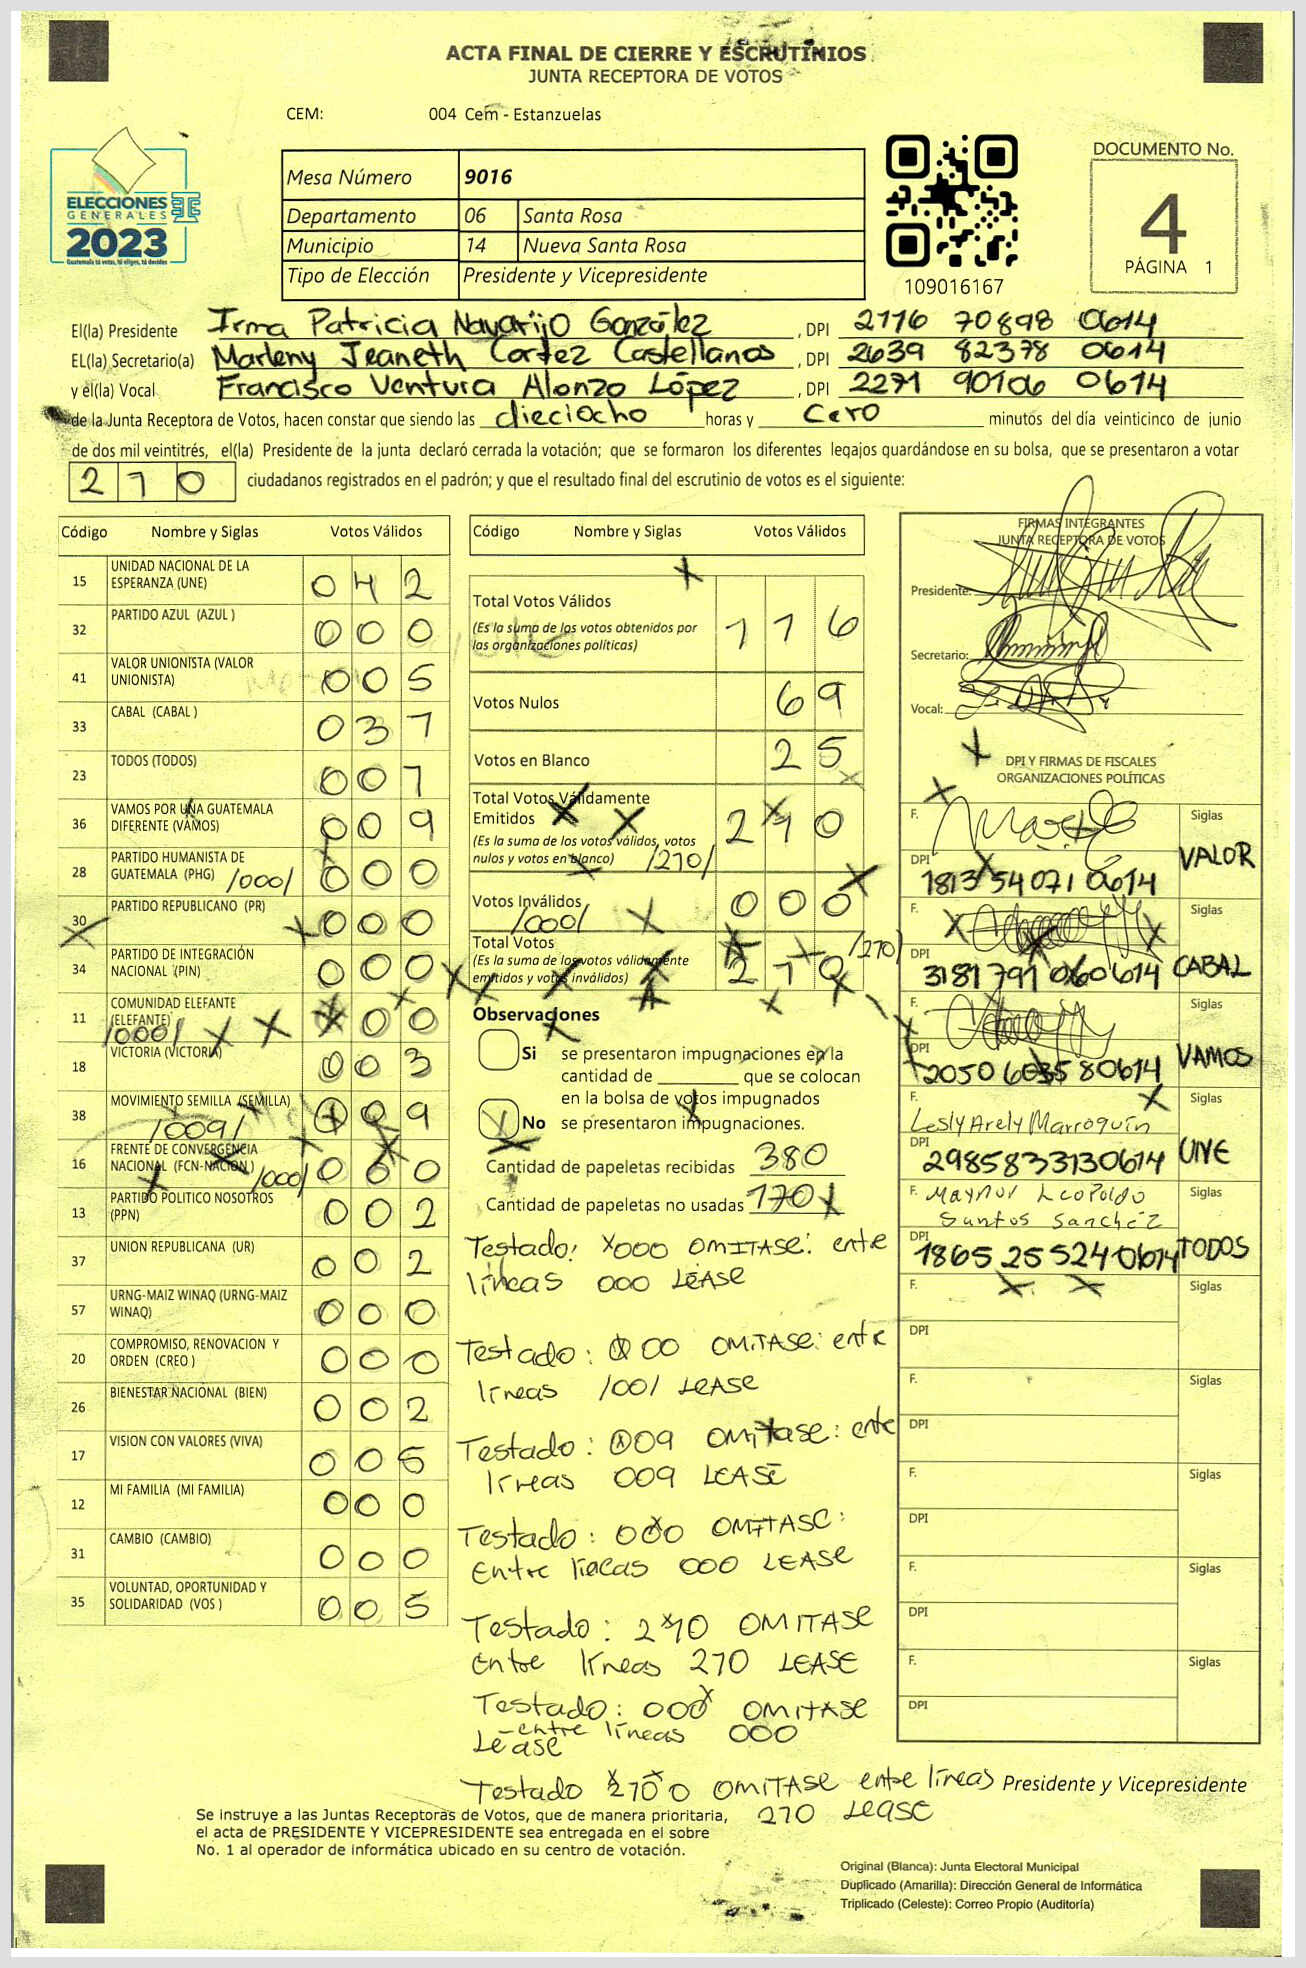 ACTA FINAL DE CIERRE Y ESCRUTINIOS
JUNTA RECEPTORA DE VOTOS
CEM: 004 Cem - Estanzuelas
ELECCIONES
GENERALES
2023
Guatemala tú votas, tú eliges, tú decides
Mesa Número 9016
Departamento 06 Santa Rosa
Municipio 14 Nueva Santa Rosa
Tipo de Elección Presidente y Vicepresidente
109016167
DOCUMENTO No.
4
PÁGINA 1
El(la) Presidente Irma Patricia Navarijo González, DPI 2116 70898 0614
EL(la) Secretario(a) Marleny Jeaneth Cortez Castellanos, DPI 2639 82378 0614
y el(la) Vocal Francisco Ventura Alonzo López, DPI 2271 90106 0614
de la Junta Receptora de Votos, hacen constar que siendo las dieciocho horas y cero minutos del día veinticinco de junio
de dos mil veintitrés, el(la) Presidente de la junta declaró cerrada la votación; que se formaron los diferentes legajos guardándose en su bolsa, que se presentaron a votar
210 ciudadanos registrados en el padrón; y que el resultado final del escrutinio de votos es el siguiente:
Código Nombre y Siglas Votos Válidos
15 UNIDAD NACIONAL DE LA ESPERANZA (UNE) 042
32 PARTIDO AZUL (AZUL ) 000
41 VALOR UNIONISTA (VALOR UNIONISTA) 005
33 CABAL (CABAL ) 037
23 TODOS (TODOS) 007
36 VAMOS POR UNA GUATEMALA DIFERENTE (VAMOS) 009
28 PARTIDO HUMANISTA DE GUATEMALA (PHG) /000/ 000
30 PARTIDO REPUBLICANO (PR) 000
34 PARTIDO DE INTEGRACIÓN NACIONAL (PIN) 000
11 COMUNIDAD ELEFANTE (ELEFANTE) /000/ 00
18 VICTORIA (VICTORIA) 003
38 MOVIMIENTO SEMILLA (SEMILLA) /009/ 09
16 FRENTE DE CONVERGENCIA NACIONAL (FCN-NACION) /000/ 000
13 PARTIDO POLITICO NOSOTROS (PPN) 002
37 UNION REPUBLICANA (UR) 002
57 URNG-MAIZ WINAQ (URNG-MAIZ WINAQ) 000
20 COMPROMISO, RENOVACION Y ORDEN (CREO ) 000
26 BIENESTAR NACIONAL (BIEN) 002
17 VISION CON VALORES (VIVA) 005
12 MI FAMILIA (MI FAMILIA) 000
31 CAMBIO (CAMBIO) 000
35 VOLUNTAD, OPORTUNIDAD Y SOLIDARIDAD (VOS ) 005
Código Nombre y Siglas Votos Válidos
Total Votos Válidos 116
(Es la suma de los votos obtenidos por las organizaciones políticas)
Votos Nulos 69
Votos en Blanco 25
Total Votos Válidamente Emitidos 210
(Es la suma de los votos válidos, votos nulos y votos en blanco) /210/
Votos Inválidos /000/ 000
Total Votos 210 /210/
(Es la suma de los votos válidamente emitidos y votos inválidos)
Observaciones
Si se presentaron impugnaciones en la
cantidad de ________ que se colocan
en la bolsa de votos impugnados
No se presentaron impugnaciones.
Cantidad de papeletas recibidas 380
Cantidad de papeletas no usadas 170
Testado: x000 OMITASE: entre
líneas 000 LEASE
Testado: 000 OMITASE: entre
líneas /001 LEASE
Testado: 009 OMITASE: entre
líneas 009 LEASE
Testado: 000 OMITASE:
Entre líneas 000 LEASE
Testado: 2x10 OMITASE
Entre líneas 210 LEASE
Testado: 000x OMITASE
entre líneas 000
Léase
Testado 210 0 OMITASE entre líneas
210 LEASE
FIRMAS INTEGRANTES
JUNTA RECEPTORA DE VOTOS
Presidente:
Secretario:
Vocal:
DPI Y FIRMAS DE FISCALES
ORGANIZACIONES POLÍTICAS
F. Siglas
DPI 1813 54071 0614 VALOR
F. Siglas
DPI 3181 791 060614 CABAL
F. Siglas
DPI VAMOS
F. Lesly Arely Marroquín Siglas
DPI 2985833130614 UNE
F. Maynor Leopoldo Santos Sanchéz Siglas
DPI 1865 25524 0614 TODOS
F. Siglas
DPI
F. Siglas
DPI
F. Siglas
DPI
F. Siglas
DPI
F. Siglas
DPI
Presidente y Vicepresidente
Se instruye a las Juntas Receptoras de Votos, que de manera prioritaria,
el acta de PRESIDENTE Y VICEPRESIDENTE sea entregada en el sobre
No. 1 al operador de informática ubicado en su centro de votación.
Original (Blanca): Junta Electoral Municipal
Duplicado (Amarilla): Dirección General de Informática
Triplicado (Celeste): Correo Propio (Auditoría)